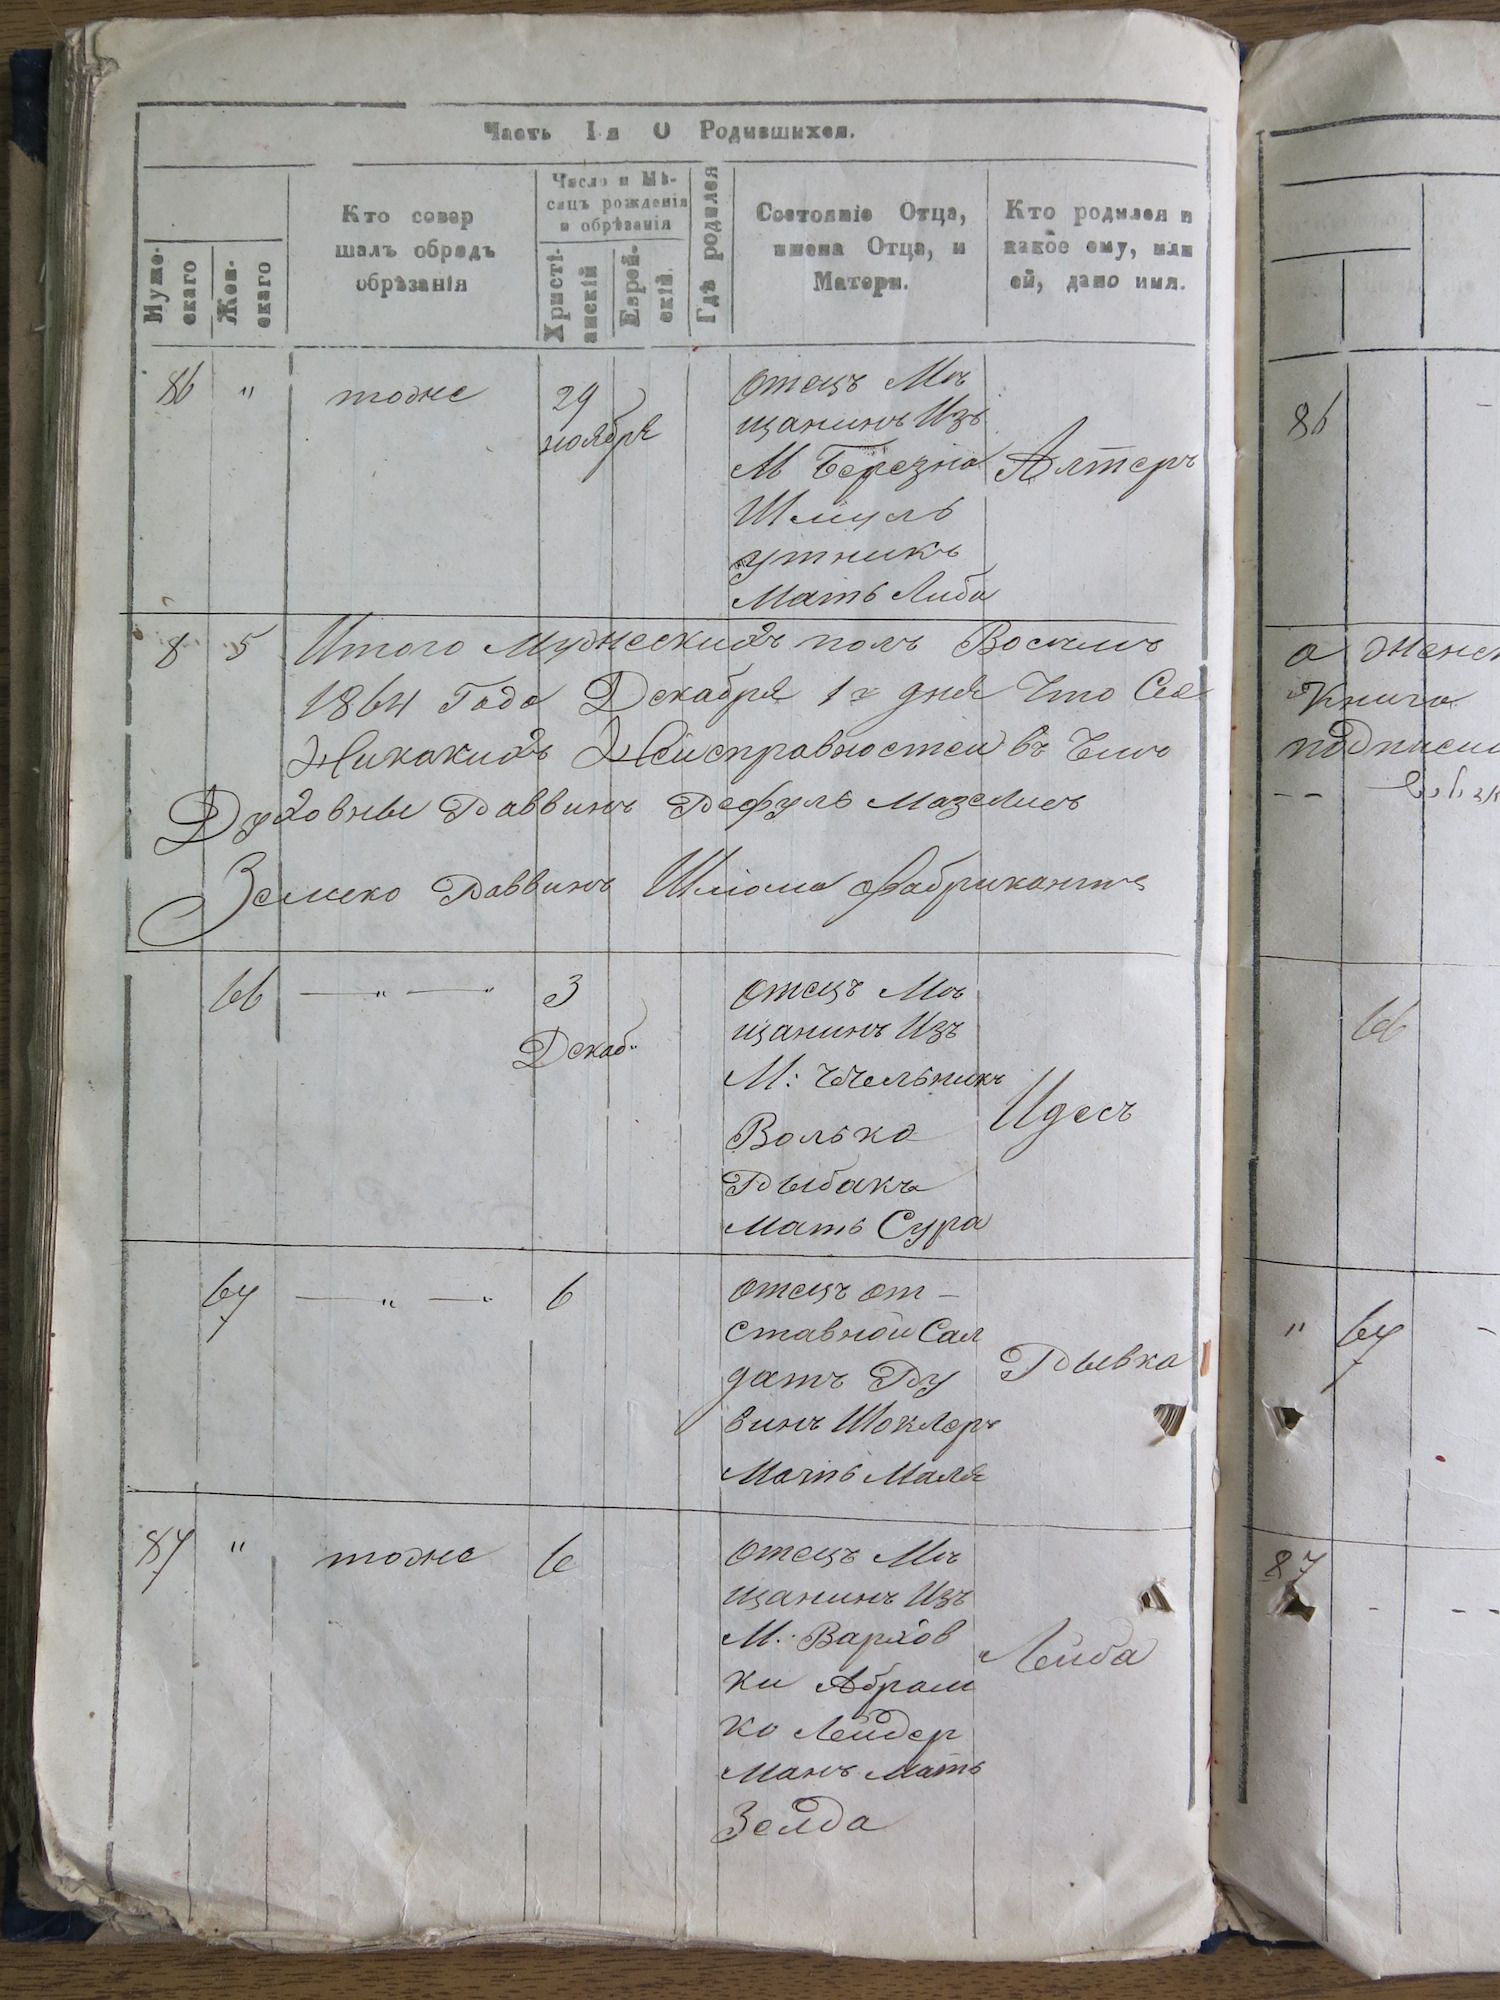 Часть I-я О Родившихся.
Мужескаго
Женскаго
Кто совер
шалъ обрядъ
обрѣзанія
Число и Мѣ-
сяцъ рожденія
и обрѣзанія
Христі-
анскій
Еврей-
скій.
Гдѣ родился
Состояніе Отца,
имена Отца, и
Матери.
Кто родился и
какое ему, или
ей, дано имя.
86 " тоже 29
ноября
отецъ Мѣ
щанинъ Изъ
М Березна
Шмуль
утникъ
Мать Либа
Алтеръ
8 5 Итого Мужескихъ полъ Восемь
1864 Года Декабря 1го дня Что Сея
Никакихъ Неисправностей въ Чемъ
Духовны Раввинъ Рефуль Мазелисъ
Земско Раввинъ Шлома Фабрикантъ
66 — " — " 3
Декаб.
отецъ Мѣ
щанинъ Изъ
М:
Волько
Рыбакъ
мать Сура
Идесъ
67 — " — " 6
отецъ от-
ставной Сал
датъ Ру
винъ Шоклеръ
Мать Маля
Рывка
87 " тоже 6
отецъ Мѣ
щанинъ Изъ
М: Вархов
ки Абрам
ко Лейдер
манъ мать
Зелда
Лейба
86
а женск
Книга
подписи
66
" 67
87